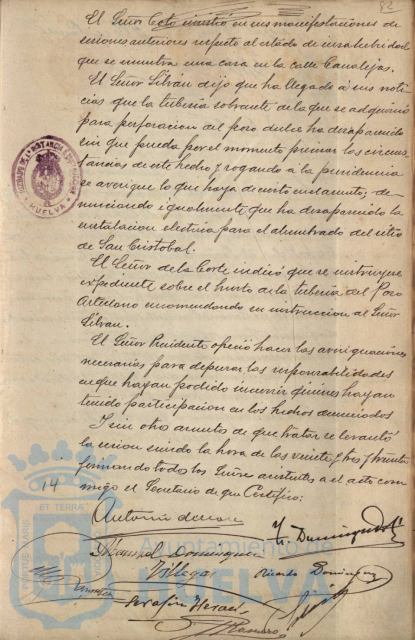 82
El Señor Coto insistió en sus manifestaciones de
sesiones anteriores respeto al estado de insalubridad
que se encuentra una casa en la calle Canalejas.
El Señor Silván dijo que ha llegado a sus noti-
cias que la tubería sobrante de la que se adquirió
para perforacion del pozo dulce ha desaparecido
sin que pueda por el momento precisar las circuns-
tancias de este hecho y rogando a la presidencia
se averigue lo que haya de cierto en el asunto; de-
nunciando igualmente que ha desaparecido la
instalacion electrica para el alumbrado del sitio
de San Cristobal.
El Señor de la Corte indicó que se instruyese
expediente sobre el hurto de la tubería del Pozo
Artesiano encomendando su instruccion al Señor
Silván.
El Señor Presidente ofreció hacer las averiguaciones
necesarias para depurar las responsabilidades
en que hayan podido incurrir quienes hayan
tenido participacion en los hechos denunciados
Y sin otro asunto de que tratar se levantó
la sesion siendo la hora de las veinte y tres y treinta
firmando todos los Señores asistentes a el acto con-
migo el Secretario de que Certifico:
14
Antonio de
T. Dominguez
Manuel Dominguez
Villegas
Ricardo Dominguez
Serafin
Romero
HUELVA
ET TERRAE
Ayuntamiento de
HUELVA